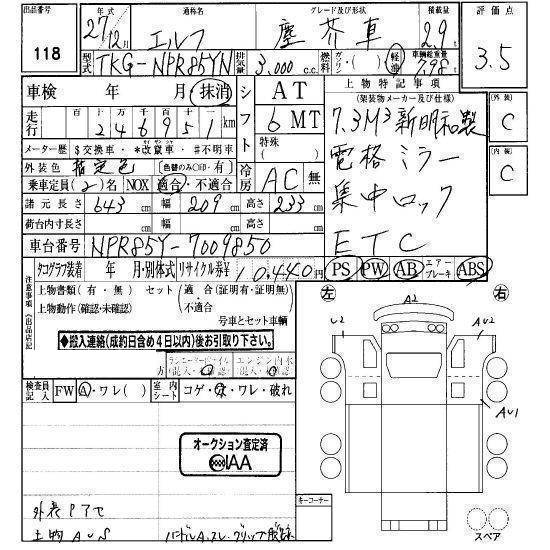 出品番号
118
年式
27年12月
通称名
エルフ
グレード及び形状
塵芥車
積載量
2.9t
評価点
3.5
型式
TKG-NPR85YN
排気量
3,000 c.c.
燃料
ガソリン・( )
軽油
車輌総重量
7.98t
車検 年 月・抹消
シフト
AT
6 MT
特殊( )
上物特記事項
(架装物メーカー及び仕様)
7.3M³ 新明和製
電格ミラー
集中ロック
ETC
外装
C
内装
C
走行
百 十 万 千 百 十 一
246951km
メーター歴 $交換車・*改竄車・#不明車
外装色 指定色 (色替のみ○印・有)
冷房
AC 無
乗車定員(2)名 NOX 適合・不適合
諸元長さ 643cm 幅 209cm 高さ 233cm
荷台内寸長さ cm 幅 cm 高さ cm
車台番号 NPR85Y-7009850
タコグラフ装着 年 月・別体式
リサイクル券¥10,440円
PS PW AB エアーブレーキ ABS
注意事項(出品店記
上物書類(有・無) セット(適合(証明有・証明無)
上物動作(確認・未確認) ・不適合)
号車とセット車輌
◆搬入連絡(成約日含め4日以内)後お引取り下さい。
左
右
A2
U2
AU2
AU1
検査員記入
FW A・ワレ( )
室内シート コゲ・穴・ワレ・破れ
オークション査定済
IAA
外装Pアセ
上物AUS
キーコーナー
スペア